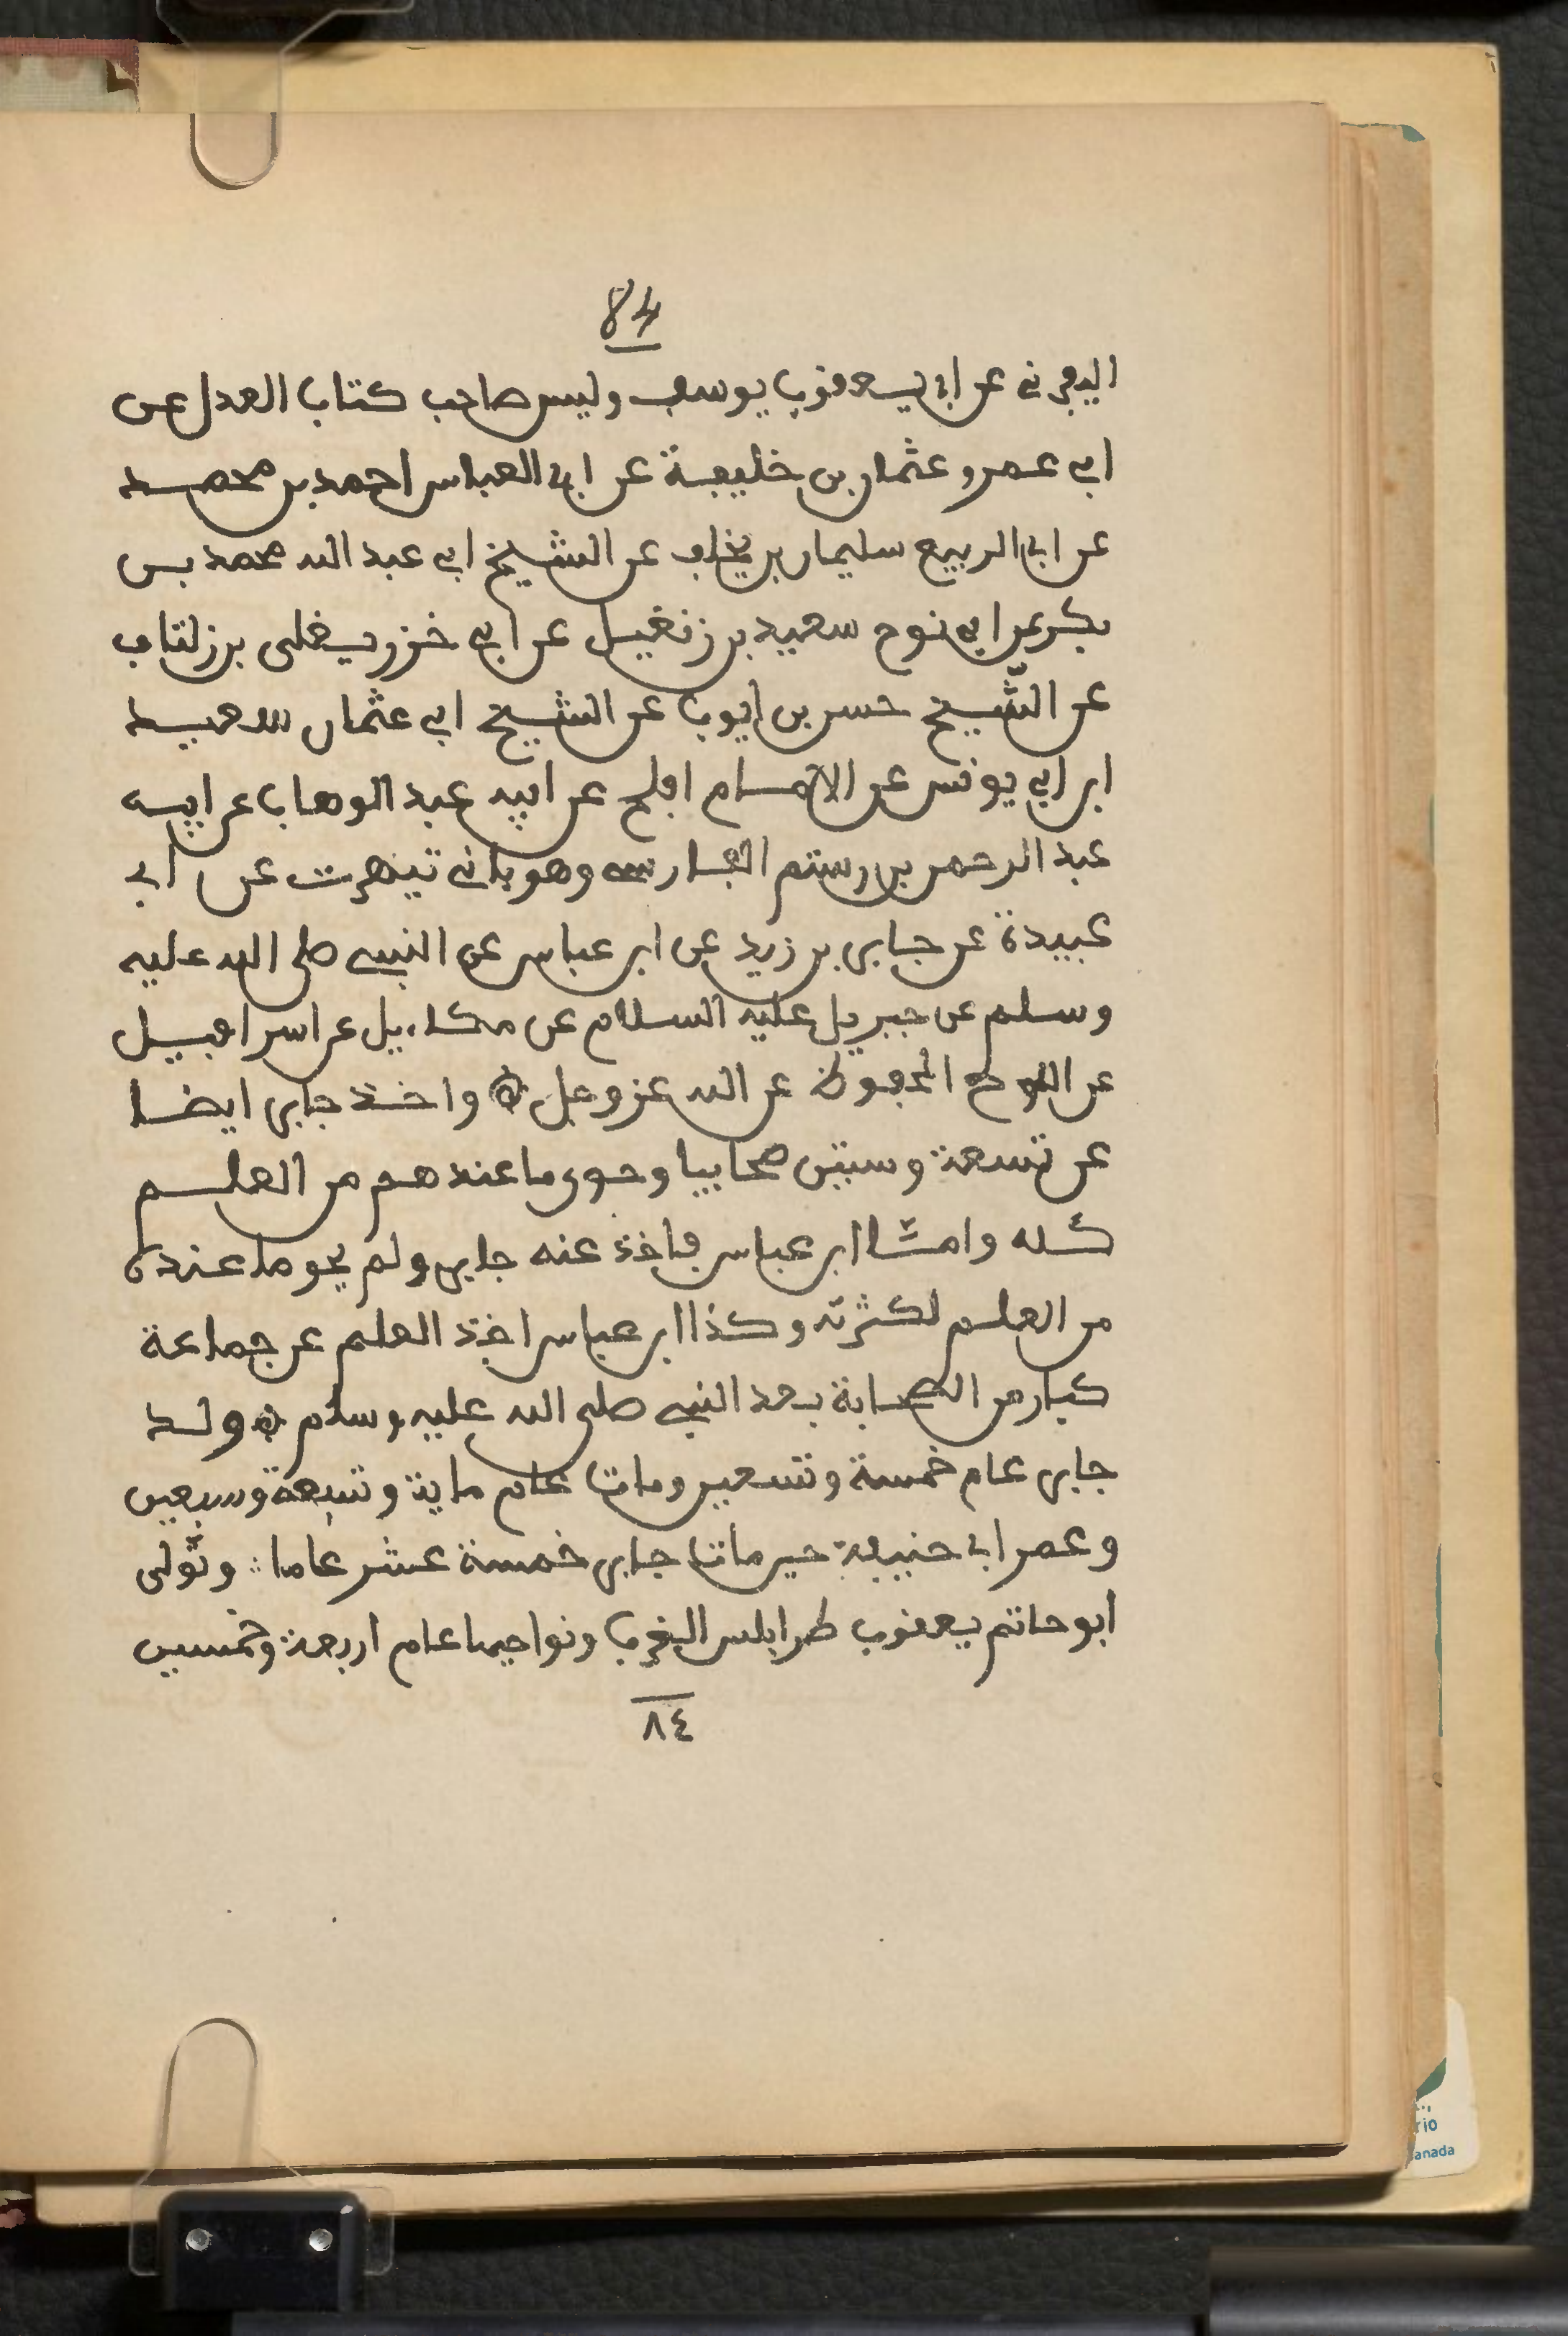 84
اليفرني عن ابي يعقوب يوسف وليس صاحب كتاب العدل عن
ابي عمرو عثمان بن خليفة عن ابي العباس احمد بن محمد
عن ابي الربيع سليمان بن يخلف عن الشيخ ابي عبد الله محمد بن
بكر عن ابي نوح سعيد بن زنغيل عن ابي خزر يغلى بن زلتاف
عن الشّيخ حسن بن ايوب عن الشيخ ابي عثمان سعيد
ابن ابي يونس عن الامام افلح عن ابيه عبد الوهاب عن ابيه
عبد الرحمن بن رستم الفارسي وهو باني تيهرت عن ابي
عبيدة عن جابر بن زيد عن ابن عباس عن النبي صلى الله عليه
وسلم عن جبريل عليه السلام عن مكاءيل عن اسرافيل
عن اللوح المحفوظ عن الله عز وجل واخذ جابر ايضا
عن تسعة وستين صحابيا وحوى ما عندهم من العلم
كله وامّا ابن عباس فاخذ عنه جابر ولم يحو ما عنده
من العلم لكثرته وكذا ابن عباس اخذ العلم عن جماعة
كبار من الصحابة بعد النبي صلى الله عليه وسلم ولد
جابر عام خمسة وتسعين ومات عام ماية وتسعة وسبعين
وعمر ابي حنيفة حين مات جابر خمسة عشر عاما وتّولى
ابو حاتم يعقوب طرابلس الغرب ونواحيها عام اربعة وخمسين
٨٤
rio
anada